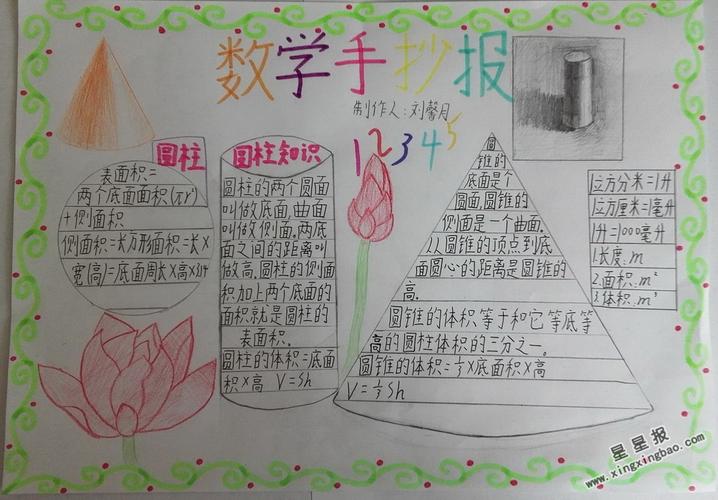 数学手抄报
制作人:刘馨月
1 2 3 4 5
圆柱
表面积=
两个底面面积(πr²)
+侧面积
侧面积=长方形面积=长×
宽(高)=底面周长×高
圆柱知识
圆柱的两个圆面
叫做底面,曲面
叫做侧面,两底
面之间的距离叫
做高。圆柱的侧面
积加上两个底面的
面积就是圆柱的
表面积。
圆柱的体积=底面
积×高 V=Sh
圆
锥的
底面是个
圆面,圆锥的
侧面是一个曲面。
从圆锥的顶点到底
面圆心的距离是圆锥的
高。
圆锥的体积等于和它等底等
高的圆柱体积的三分之一。
圆锥的体积=⅓×底面积×高
V=⅓Sh
1立方分米=1升
1立方厘米=1毫升
1升=1000毫升
1.长度.m
2.面积.m²
3.体积.m³
星星报
www.xingxingbao.com